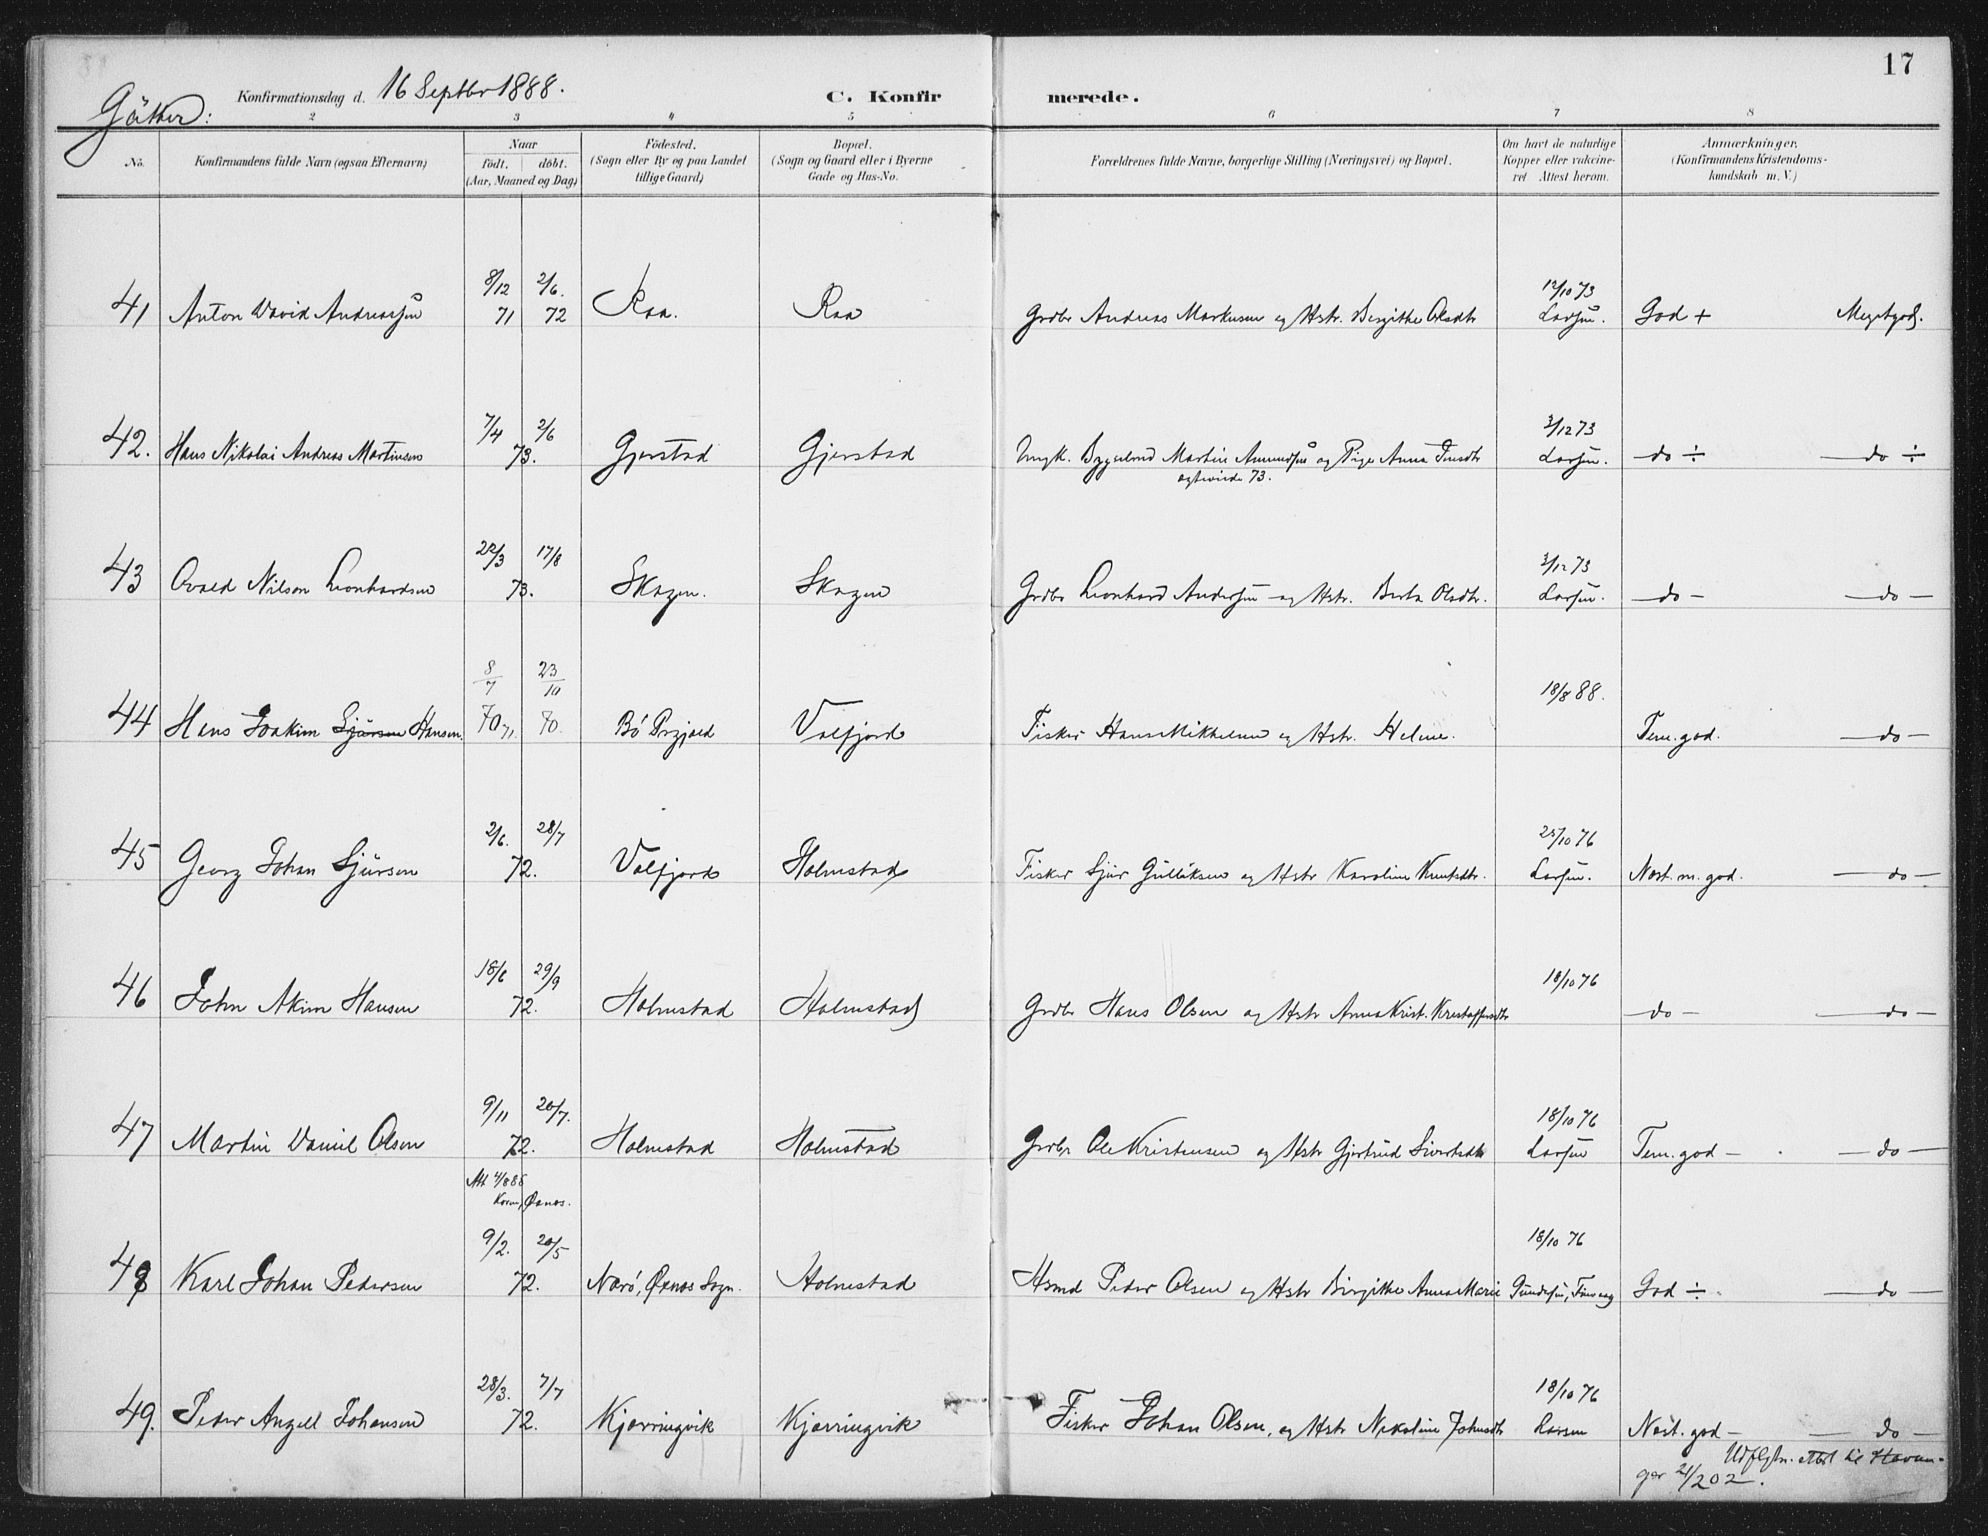 17
Gutter: Konfirmationsdag d. 16 Septbr 1888. C. Konfir merede.
2 3 4 5 6 7 8
No. Konfirmandens fulde Navn (ogsaa Efternavn) Naar født. døbt. (Aar, Maaned og Dag) Födested. (Sogn eller By og paa Landet tillige Gaard) Bopæl. (Sogn og Gaard eller i Byerne Gade og Hus-No. Forældrenes fulde Navne, borgerlige Stilling (Næringsvei) og Bopæl. Om havt de naturlige Kopper eller vakcineret Attest herom. Anmærkninger. (Konfirmandens Kristendomskundskab m. V.)
8/12 2/6. 12/10 73
41 Anton David Andreassen 71 72 Raa. Raa Grdbr Andreas Markusen og Hstr. Bergitte Olsdtr Larsen. God + Megetgod.
7/4 2/6 3/12 73
42. Hans Nikolai Andreas Martinsen 73. Gjerstad Gjerstad Ungk. Martin Amundsen og Pige Anna Larsen. do ÷ do ÷
73.
22/3 17/8 3/12 73
43 Ovald Nilson Leonhardsen 73. Skagen. Skagen Grdbr Leonhard Andersen og Hstr. Berta Olsdtr. Larsen. do - do -
8/7 23/10 18/8 88.
44 Hans Joakim Sjursen Hansen. 70 71. 70. Bö Valfjord Fisker Hans Mikkelsen og Hstr. Helene. Tem. god. do -
2/6. 28/7 25/10 76
45 Georg Johan Sjursen 72. Valfjord Holmstad Fisker Sjur Gulliksen og Hstr Karoline Knutsdtr. Larsen. Næst. m. god. do -
18/6 29/9 18/10 76
46 John Akim Hansen 72. Holmstad Holmstad Grdbr Hans Olsen og Hstr Anna Krist. Kristoffersdtr do - do -
9/11 20/7. 18/10 76
47 Martin Daniel Olsen 72. Holmstad Holmstad Grdbr Ole Kristensen og Hstr Gjertrud Sivertsdtr Larsen Tem. god - do -
Øxnes.
9/2. 20/5 18/10 76
48 Karl Johan Pedersen 72. Nærö, Øxnes Sogn. Holmstad Hsmd Peder Olsen og Hstr Birgitte Anna Marie God ÷ do -
28/3. 7/7 18/10 76
49. Peder Angell Johansen 72. Kjærringvik Kjærringvik Fisker Johan Olsen, og Hstr Nikoline Johnsdtr Larsen Næst. god - do -
Udflytn. attest til